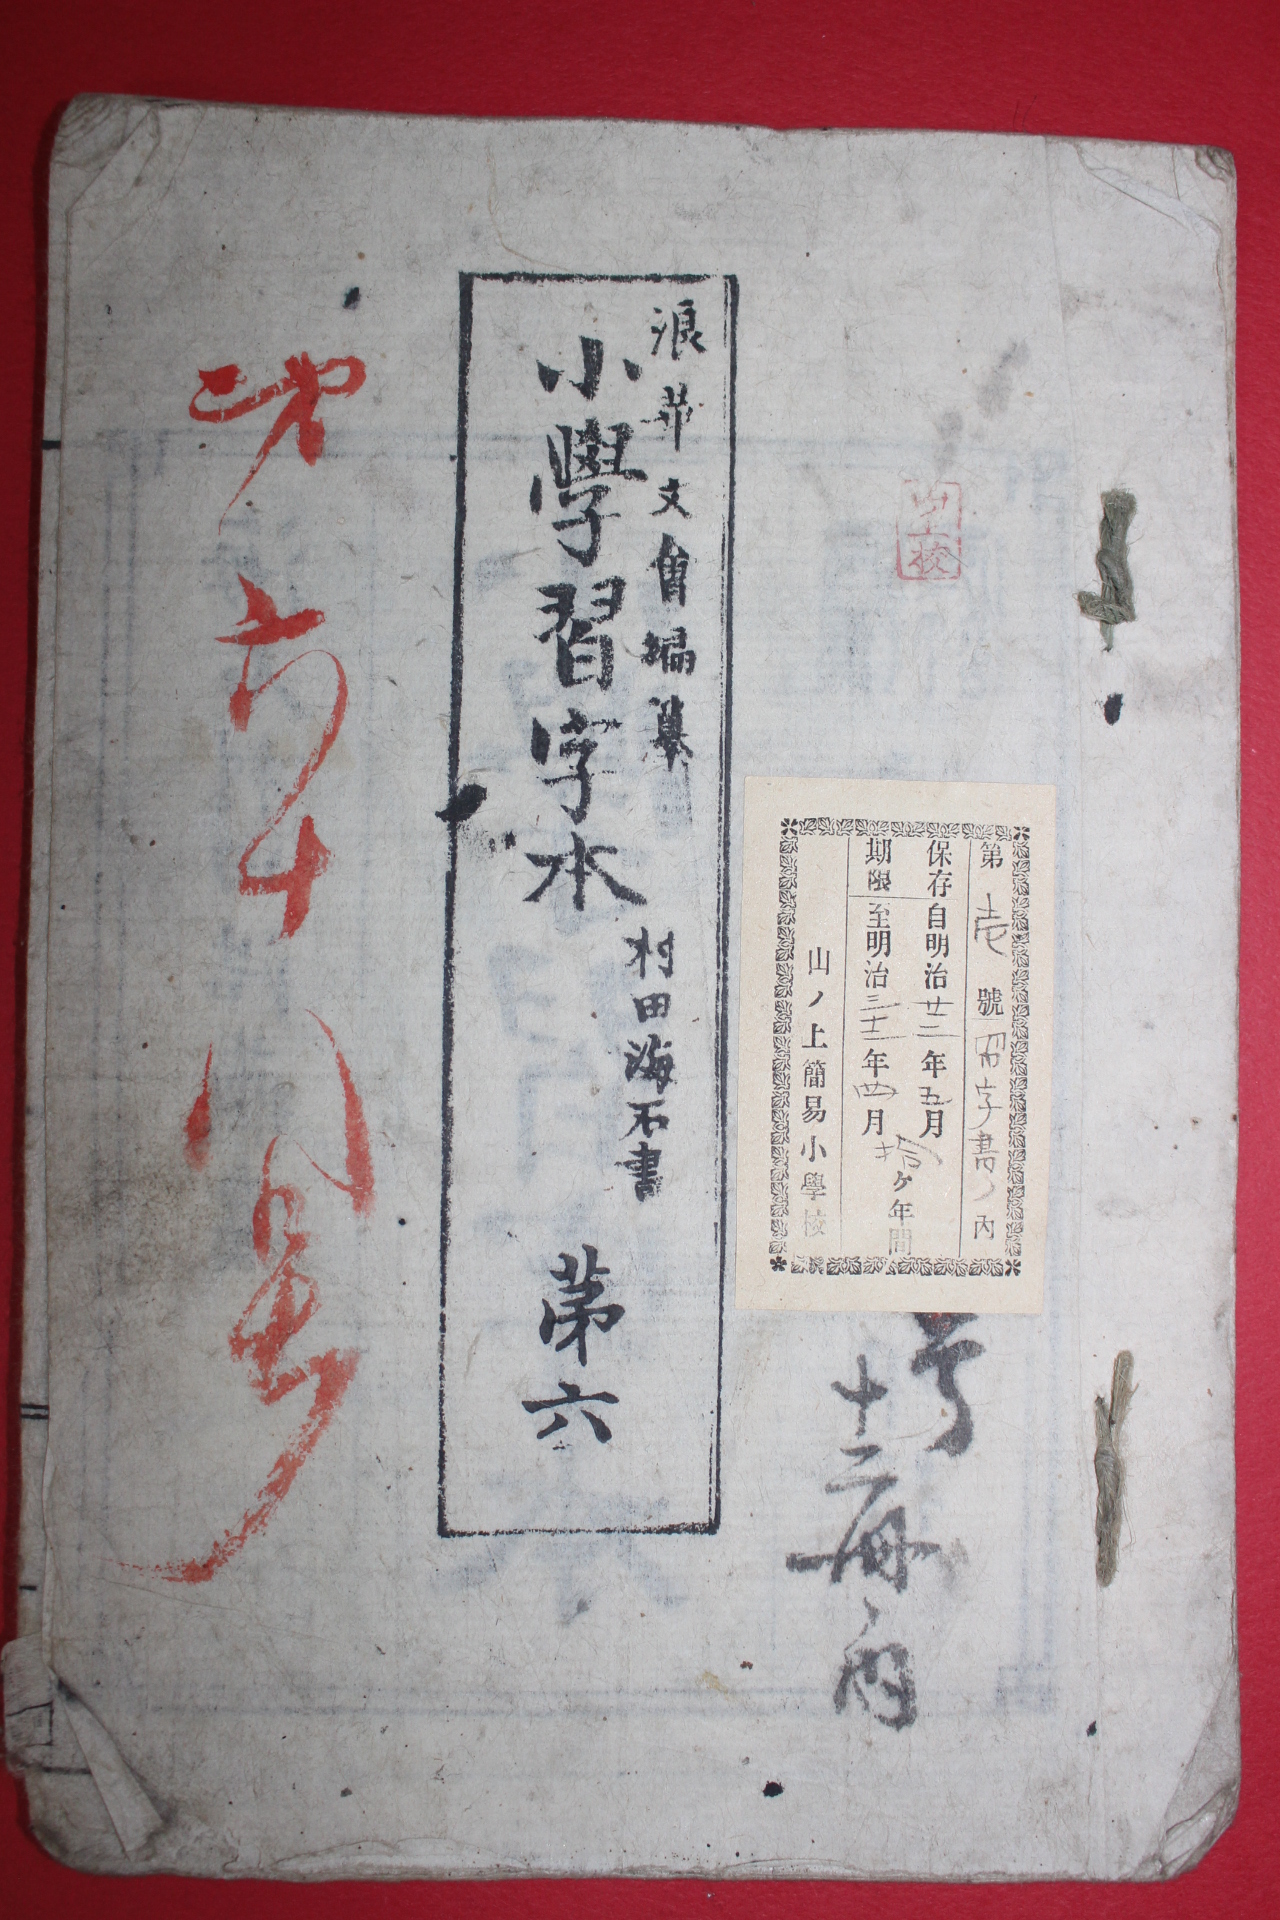 山上校
第壱號習字書ノ内
保存自明治廿二年五月
期限至明治三十二年四月
拾ケ年間
山ノ上簡易小學校
号
十二冊ノ内
浪華文會編纂
小學習字本
村田海石書
第六
第六十八号